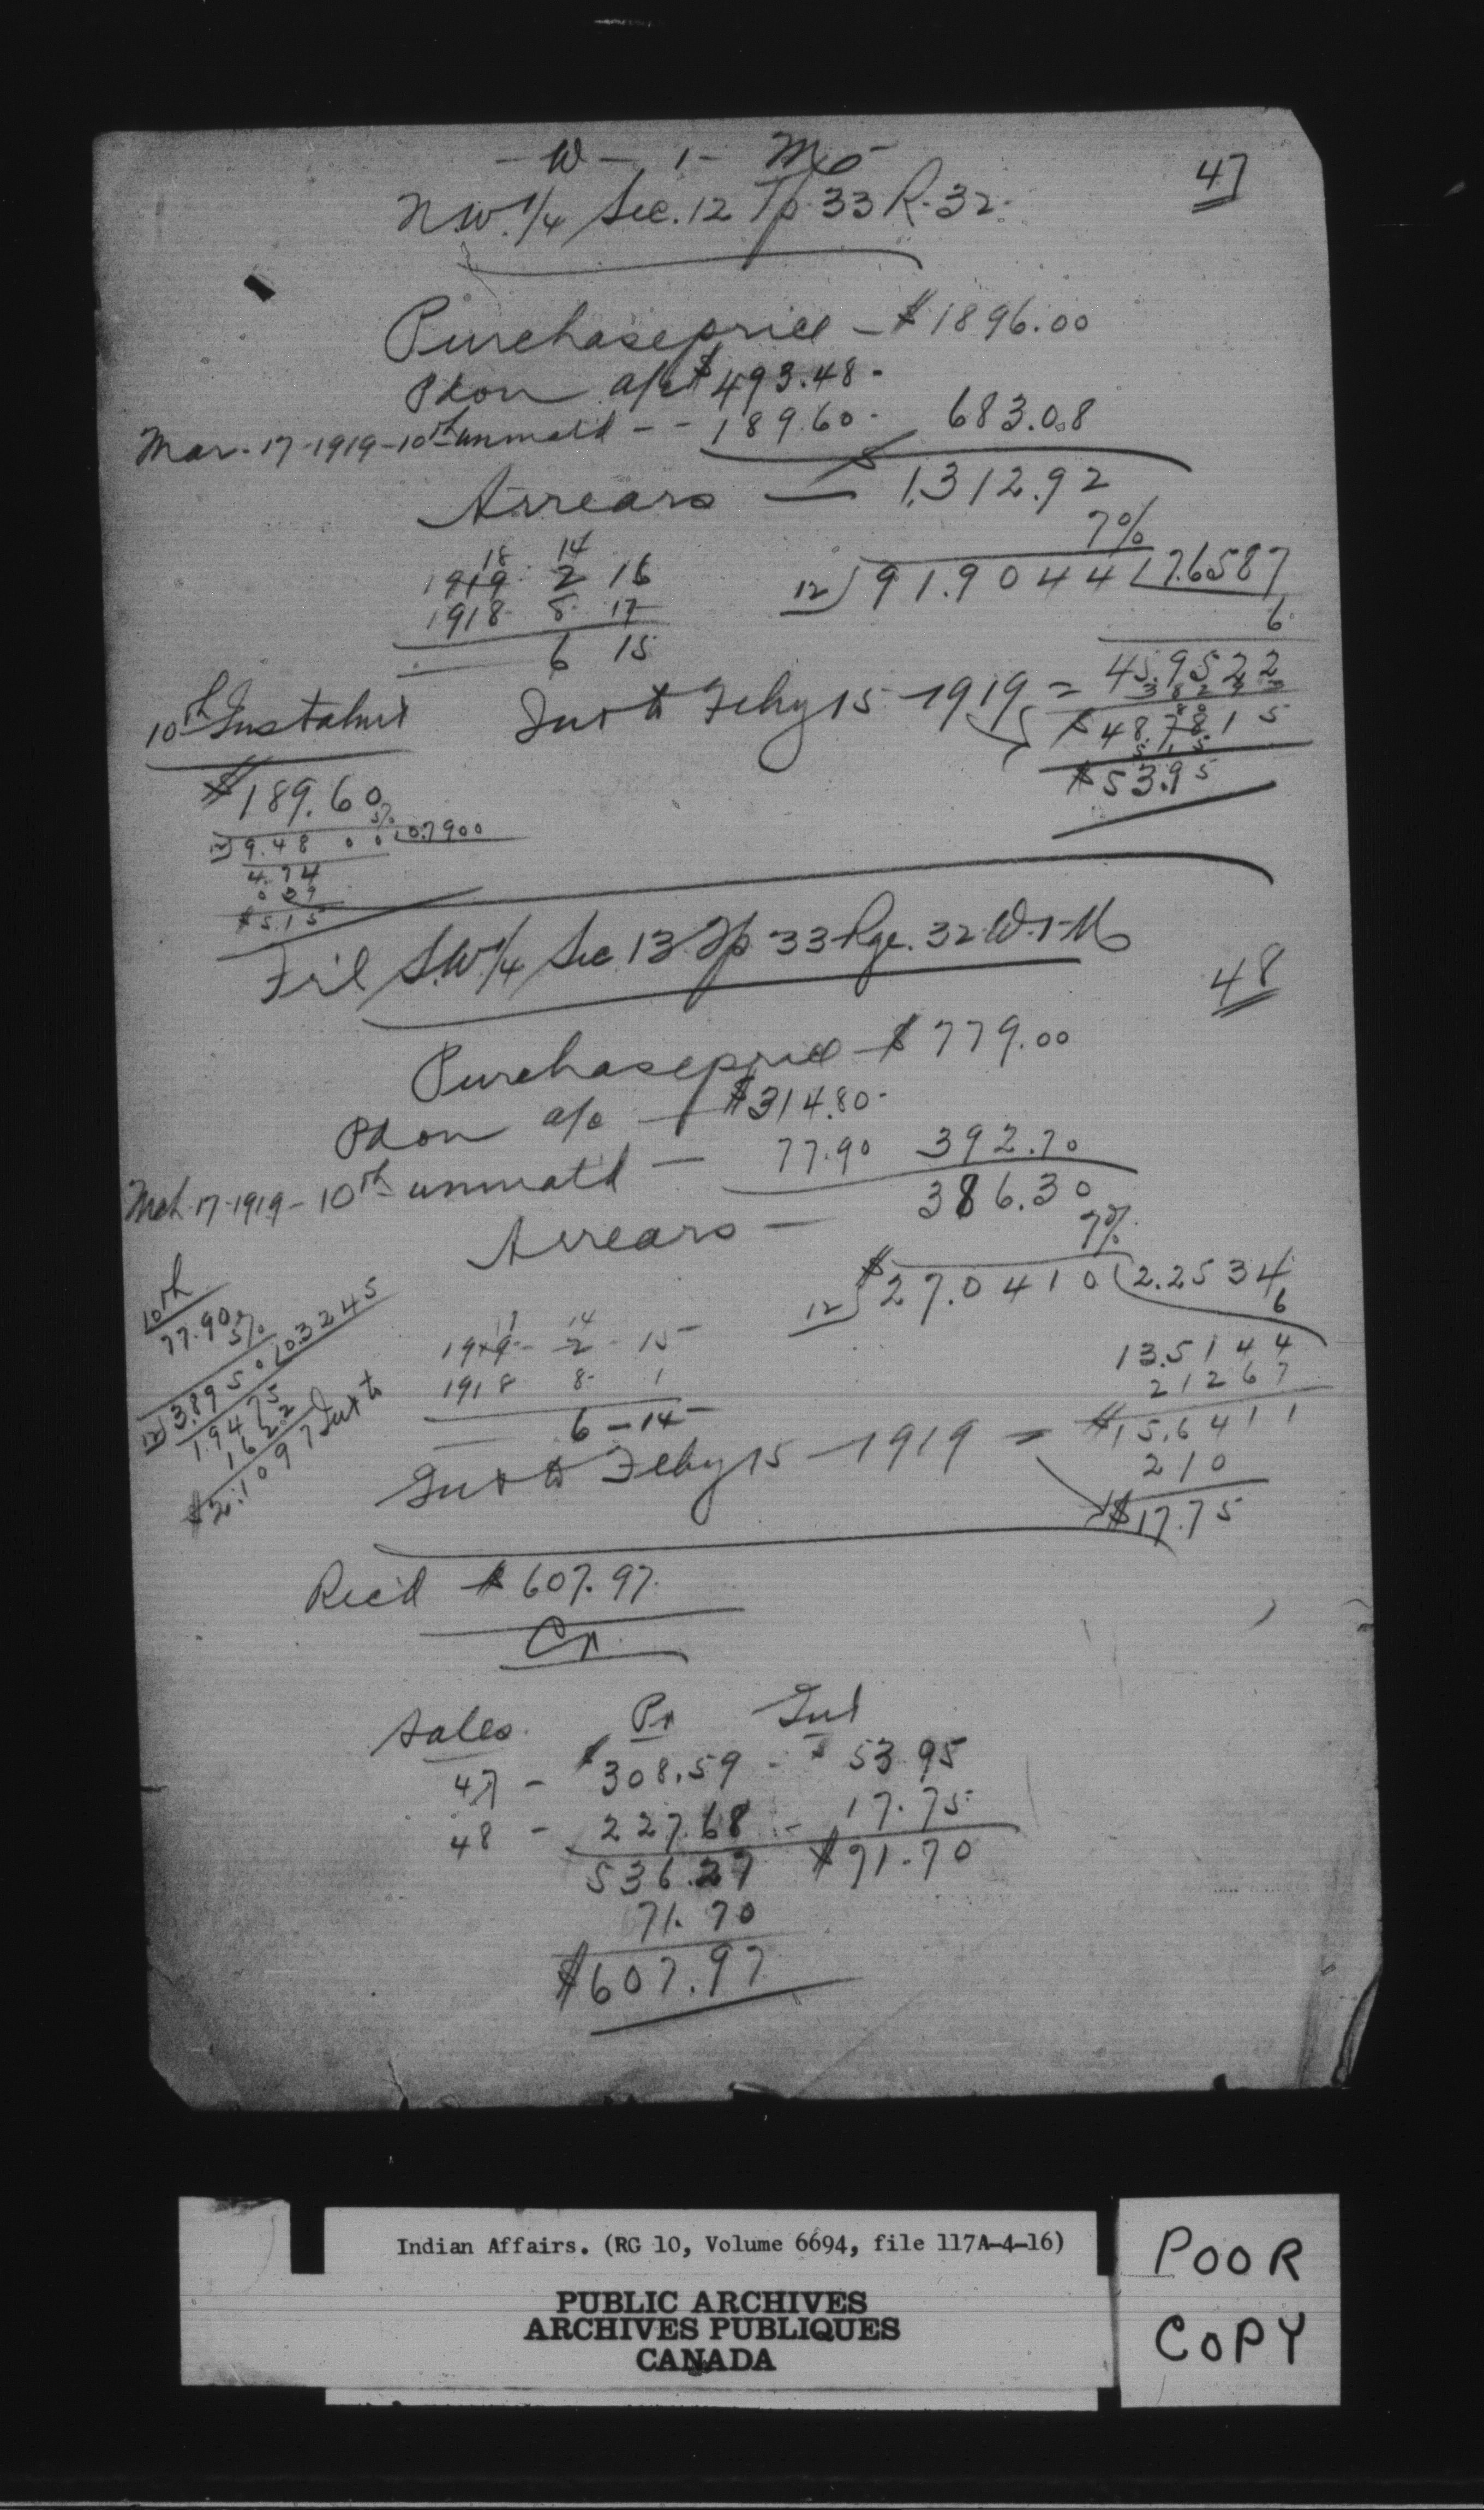 - W - 1 - M
47
N.W. 1/4 Sec. 12 Tp 33 R. 32.
Purchase price - $1896.00
Pd on a/c $493.48 -
Mar. 17-1919-10th unmatd - - 189.60 - 683.08
Arrears — $1,312.92
7%
18 14
1919 2 16
12) 91.9044 (7.6587
1918 8 17
6
6 15
45.9522
3 8 2 9 3
10th Instalmt
Int to Feby 15 - 1919 = $48.7815
80
5.15
$53.95
$189.60
5%
12) 9.48 00 (0.7900
4.74
0 39
$5.15
Fr'l S.W 1/4 Sec 13 Tp 33 Rge. 32-W-1-M
48
Purchase price - $779.00
Pd on a/c — $314.80 -
Mch-17-1919 - 10th unmatd — 77.90 392.70
Arrears — 386.30
7%
12) $27.0410 (2.2534
6
13.5144
21267
10th
77.90
5%
12) 3.8950 (0.3245
1.9475
1622
$2.1097 Int to
14
1919 - 2 - 15
1918 8 - 1
6 - 14 -
Int to Feby 15 - 1919 = $15.6411
210
$17.75
Rec'd $607.97
Cr.
Sales. Pr Int
47 - $308.59 - $53.95
48 - 227.68 - 17.75
536.27 $71.70
71.70
$607.97
Indian Affairs. (RG 10, Volume 6694, file 117A-4-16)
PUBLIC ARCHIVES
ARCHIVES PUBLIQUES
CANADA
POOR
COPY